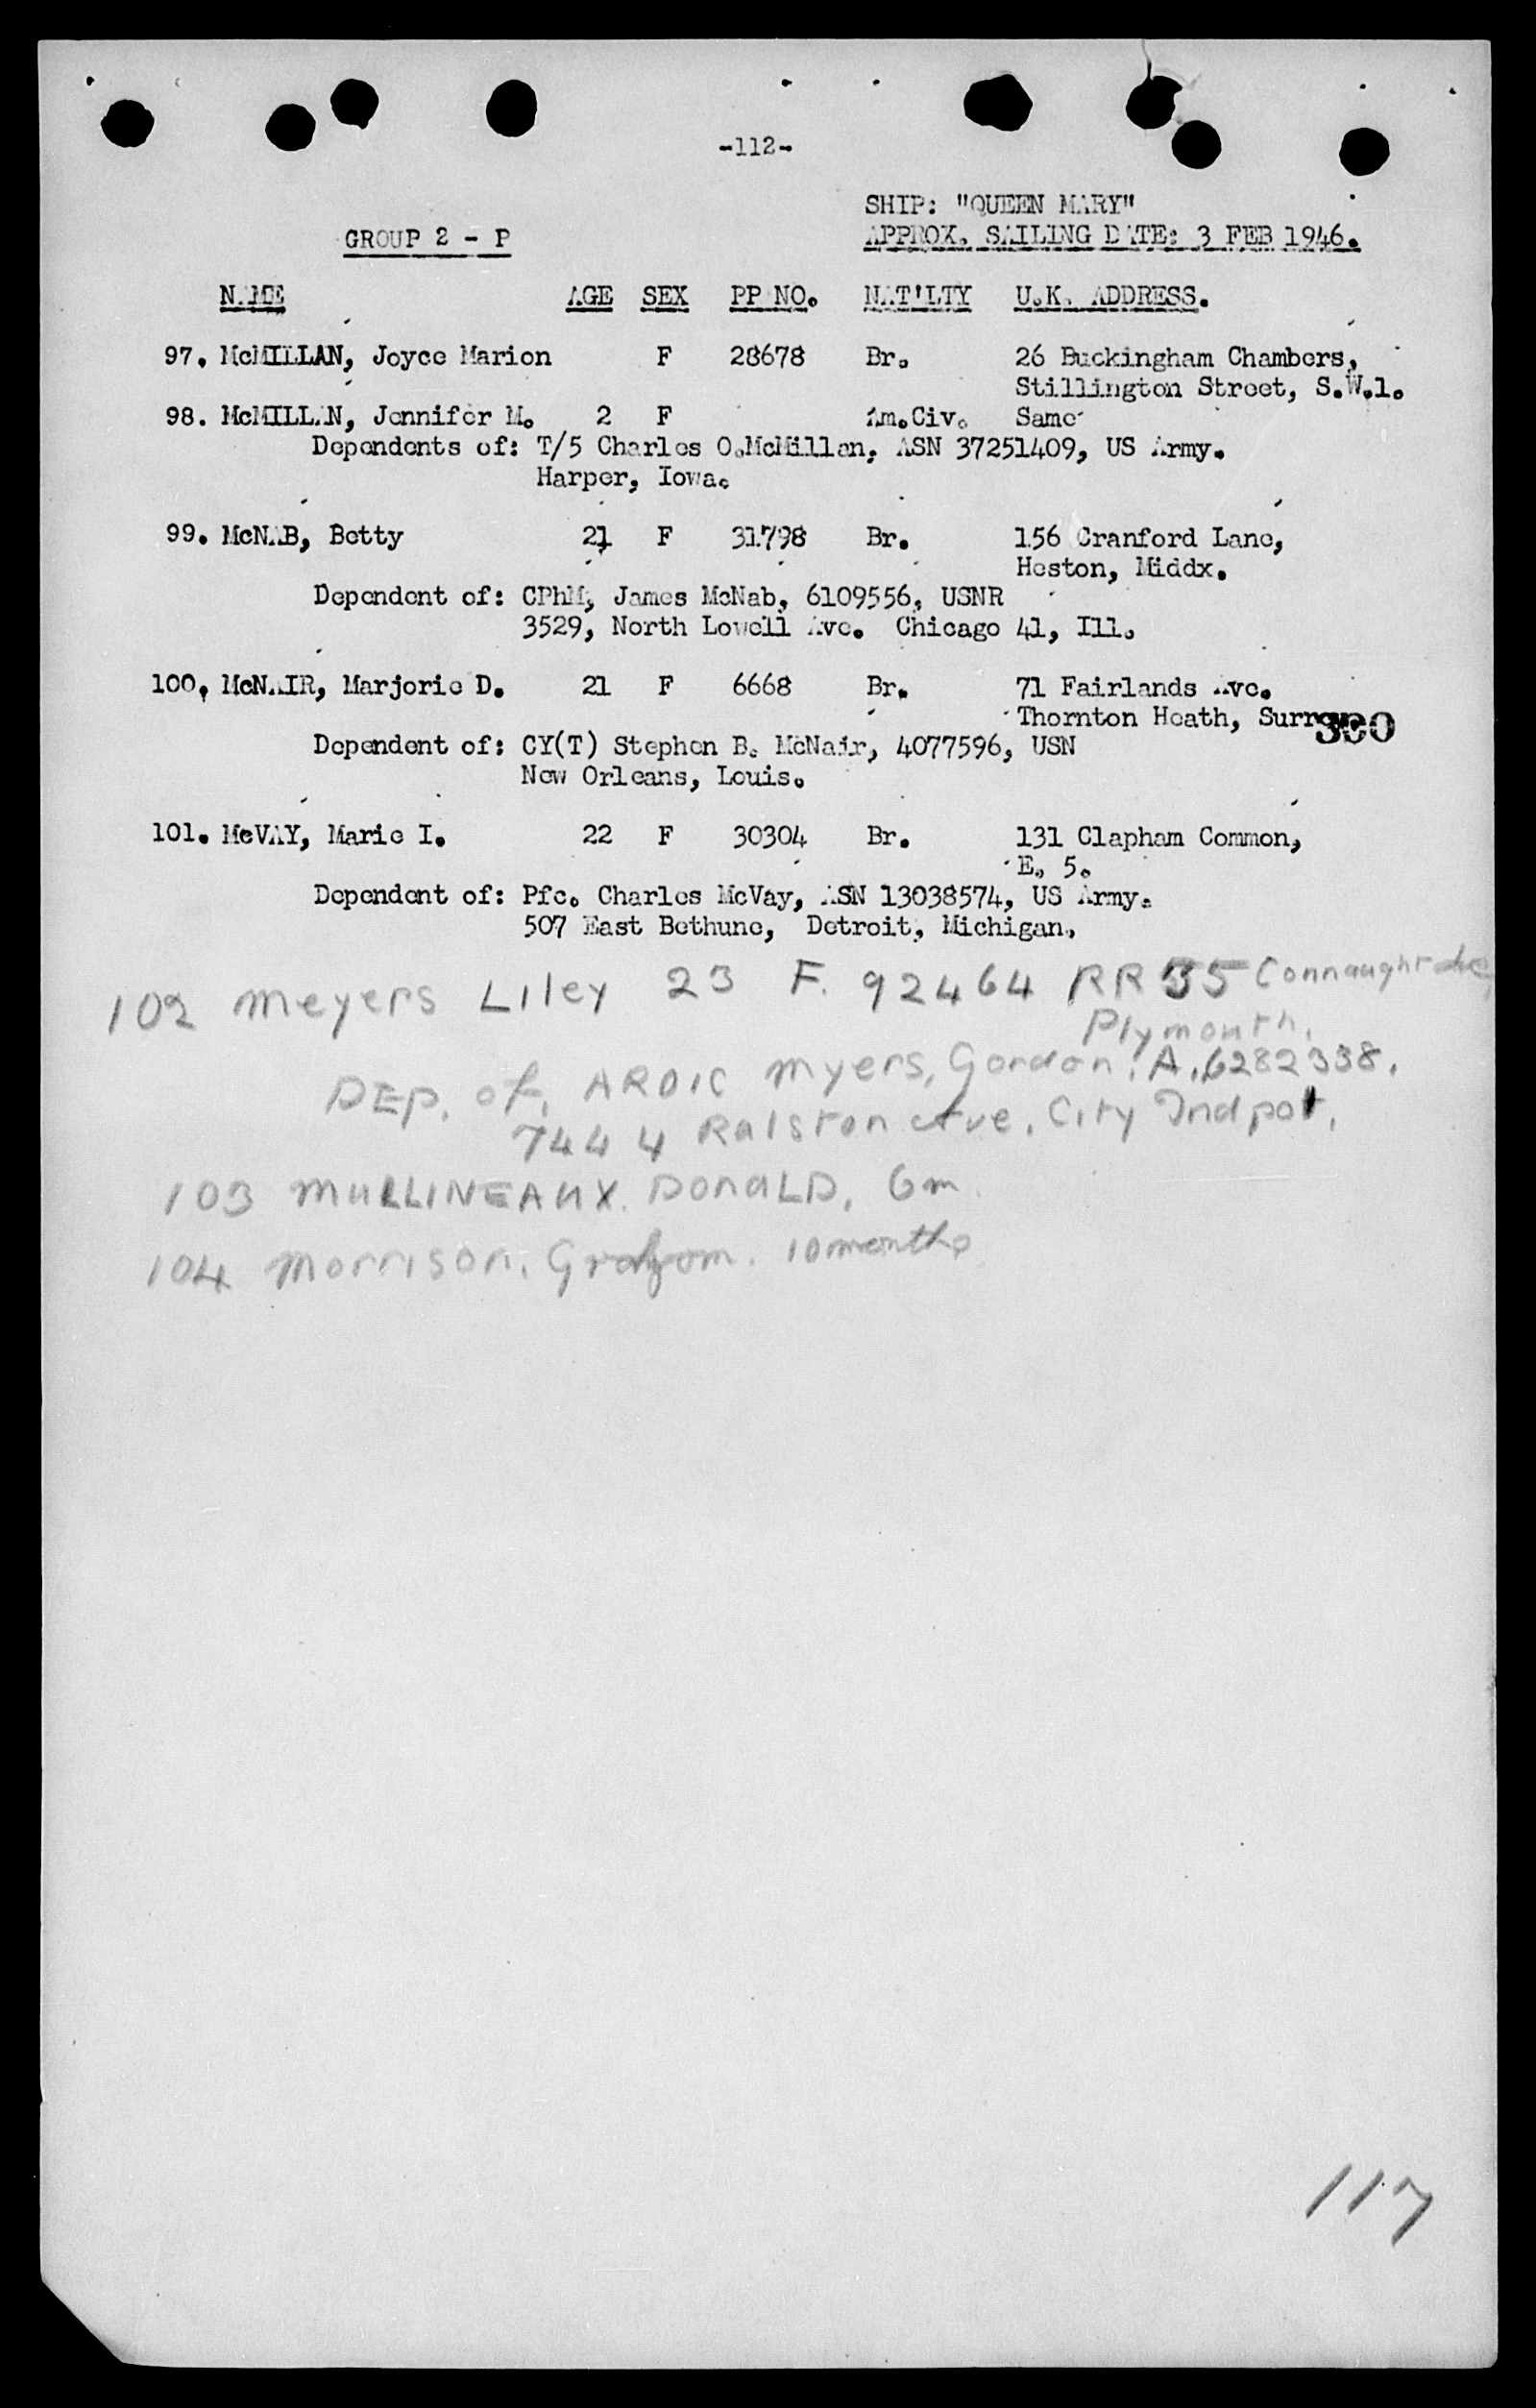 -112-
SHIP: "QUEEN MARY"
GROUP 2 - P APPROX. SAILING DATE: 3 FEB 1946.
NAME AGE SEX PP NO. NAT'LTY U.K. ADDRESS.
97. McMILLAN, Joyce Marion F 28678 Br. 26 Buckingham Chambers,
Stillington Street, S.W.1.
98. McMILLAN, Jennifer M. 2 F Am.Civ. Same
Dependents of: T/5 Charles O.McMillan, ASN 37251409, US Army.
Harper, Iowa.
99. McNAB, Betty 21 F 31798 Br. 156 Cranford Lane,
Heston, Middx.
Dependent of: CPhM, James McNab, 6109556, USNR
3529, North Lowell Ave. Chicago 41, Ill.
100. McNAIR, Marjorie D. 21 F 6668 Br. 71 Fairlands Ave.
Thornton Heath, Surrey
Dependent of: CY(T) Stephen B. McNair, 4077596, USN
New Orleans, Louis.
101. McVAY, Marie I. 22 F 30304 Br. 131 Clapham Common,
E. 5.
Dependent of: Pfc. Charles McVay, ASN 13038574, US Army.
507 East Bethune, Detroit, Michigan.
102 Meyers Liley 23 F. 92464 RR 35 Connaught Ave
Plymouth.
DEP. of. AROIC Myers, Gordon. A. 6282338.
7444 Ralston Ave. City Indpot.
103 MULLINEAUX. DONALD, 6m
104 Morrison. 10 months
117